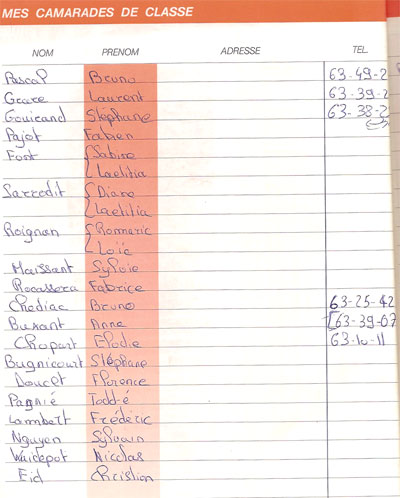 MES CAMARADES DE CLASSE
NOM PRENOM ADRESSE TEL.
Pascal Bruno 63-49-2
Grare Laurent 63-39-2
Gouirand Stéphane 63-38-2
Pajot Fabien
Fost Sabine
Laetitia
Sarredit Diane
Laetitia
Roignan Romaric
Loïc
Maissant Sylvie
Rocassera Fabrice
Chediac Bruno 63-25-42
Buxant Anne 63-39-07
Chopart Elodie 63-10-11
Bugnicourt Stéphane
Doucet Florence
Pagnié
Lambert Frédéric
Nguyen Sylvain
Waitepot Nicolas
Eid Christian